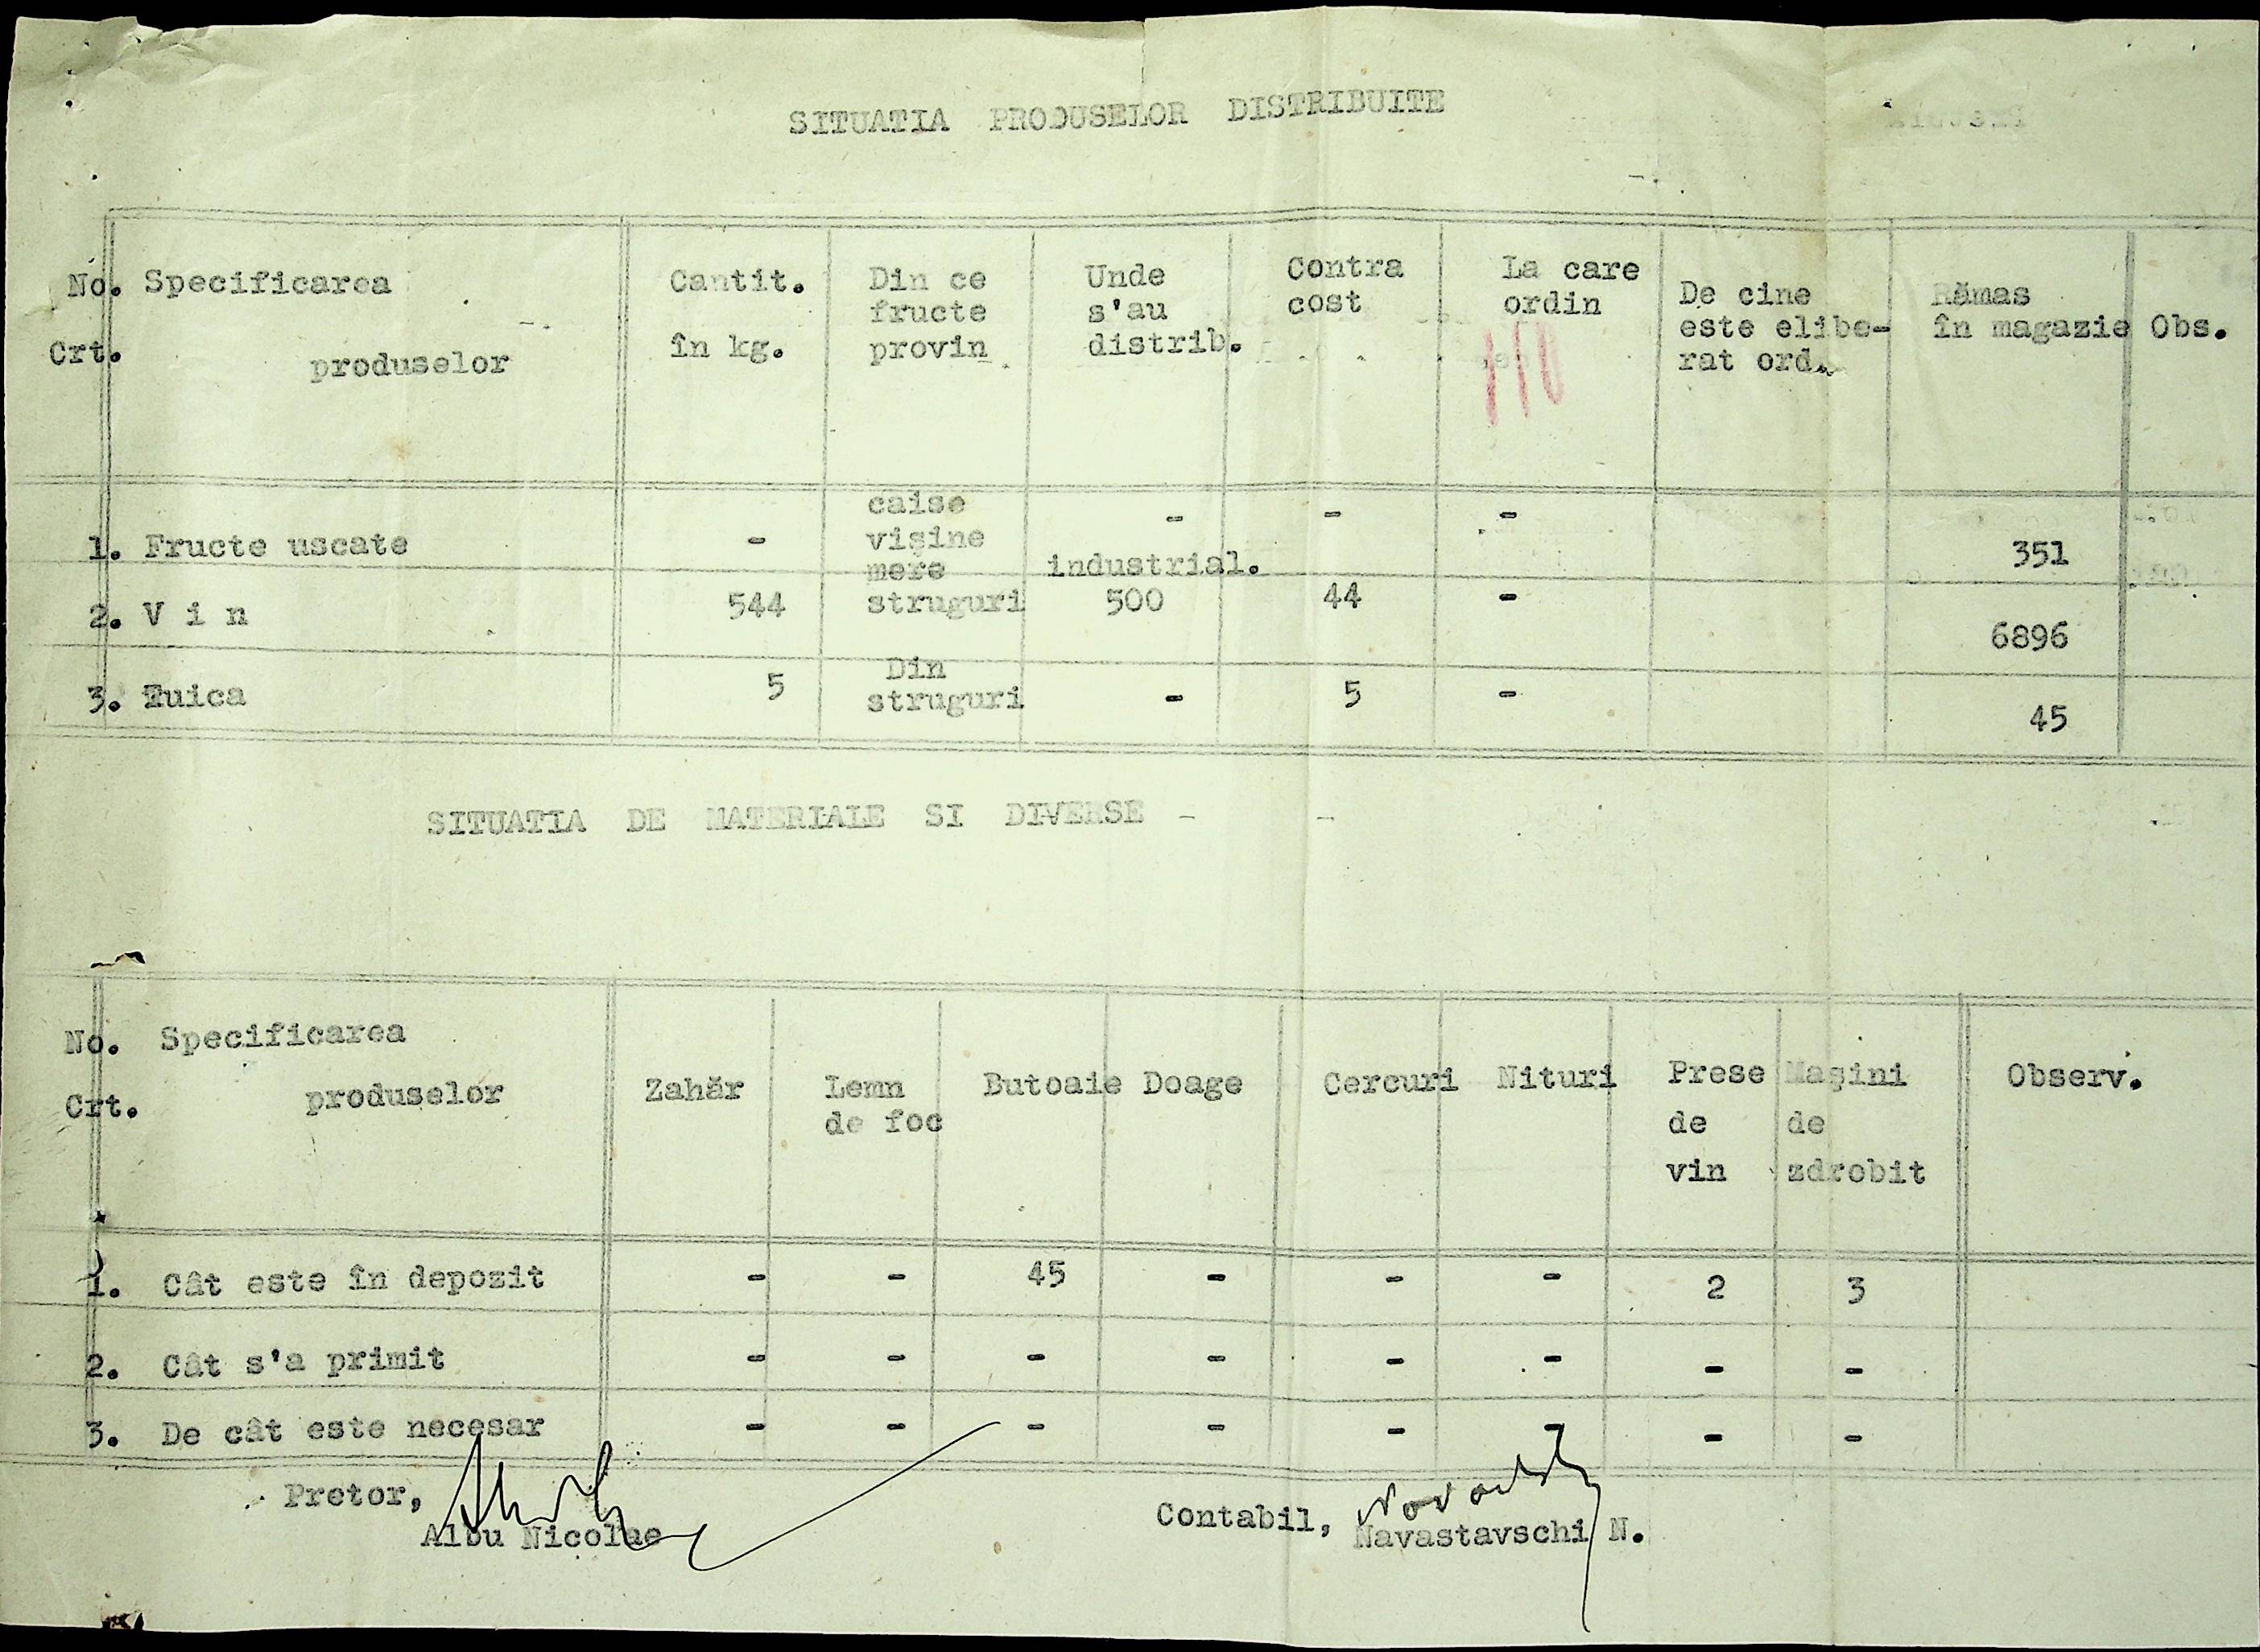 SITUATIA PRODUSELOR DISTRIBUITE
No. Crt. Specificarea produselor Cantit. în kg. Din ce fructe provin Unde s'au distrib. Contra cost La care ordin De cine este elibe- rat ord. Rămas în magazie Obs.
110
1. Fructe uscate - caise vișine mere - - - 351
2. V i n 544 struguri industrial. 500 44 - 6896
3. Țuica 5 Din struguri - 5 - 45
SITUATIA DE MATERIALE SI DIVERSE -
No. Crt. Specificarea produselor Zahăr Lemn de foc Butoaie Doage Cercuri Nituri Prese de vin Mașini de zdrobit Observ.
1. Cât este în depozit - - 45 - - - 2 3
2. Cât s'a primit - - - - - - - -
3. De cât este necesar - - - - - - - -
Pretor,
Albu Nicolae
Contabil,
Navastavschi N.